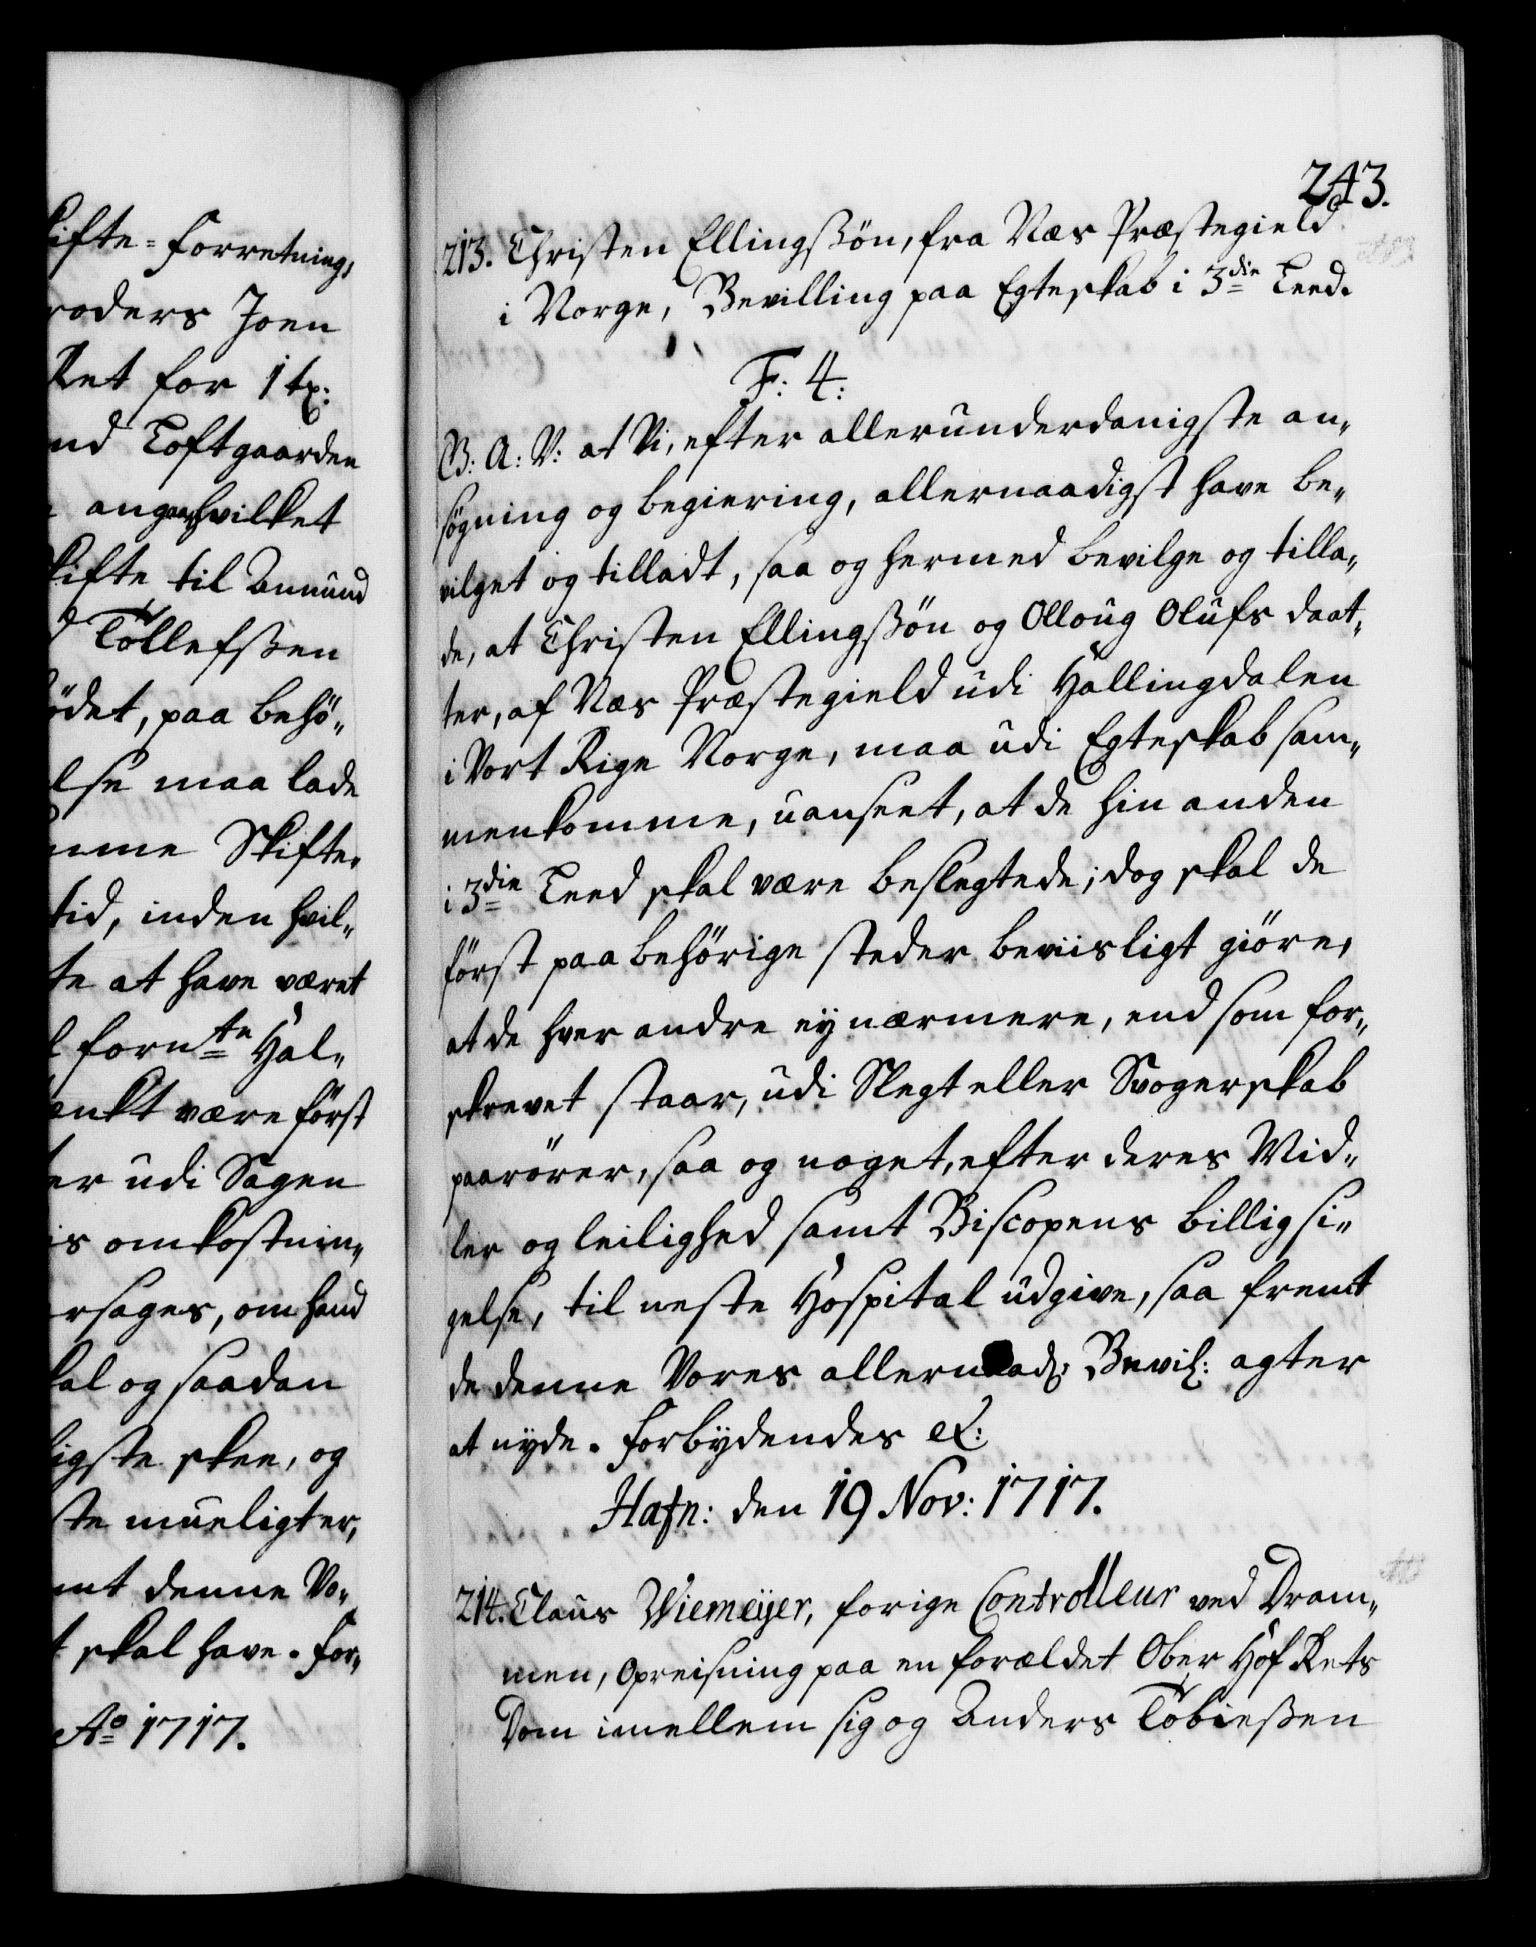 ifte-Forretning,
roders Joen
Ret for 1 tx:
nd Toftgaarden
hvilket
kifte til Amund
d Tollefsßen
ødet, paa behø„
lse maa lade
mme Skifte„
tid, inden hvil„
te at have været
l fornte Hal„
enkt være först
er udi Sagen
is omkostnin„
rsages, om hand
kal og saadan
igste skee, og
ste mueligter,
mt denne Vo„
t skal have. For„
Ao 1717.
243.
213. Christen Ellingsßön, fra Næs Præstegield
i Norge, Bevilling paa Egteskab i 3die Leed.
F: 4:
G: A: V: at Vi, efter allerunderdanigste an„
søgning og begiering, allernaadigst have be„
vilget og tilladt, saa og hermed bevilge og tilla„
de, at Christen Ellingsßön og Olloug Olufs daat„
ter, af Næs Præstegield udi Hallingdalen
i Vort Rige Norge, maa udi Egteskab sam„
menkomme, uanseet, at de hin anden
i 3die Leed skal være beslegtede; dog skal de
först paa behörige steder beviisligt giöre,
at de hver andre ey nærmere, end som for„
skrevet staar, udi Slegt eller Svogerskab
paarörer, saa og noget, efter deres Mid„
ler og leilighed samt Biscopens billigsi„
gelse, til neste Hospital udgive, saa fremt
de denne Vores allernaad: Bevil: agter
at nyde. Forbydendes etc:
Hafn: den 19 Nov: 1717.
214. Claus Wiemeijer, forige Controlleur ved Dram„
men, Opreisning paa en forældet Ober Hof Rets
Dom imellem sig og Anders Tobiesßen